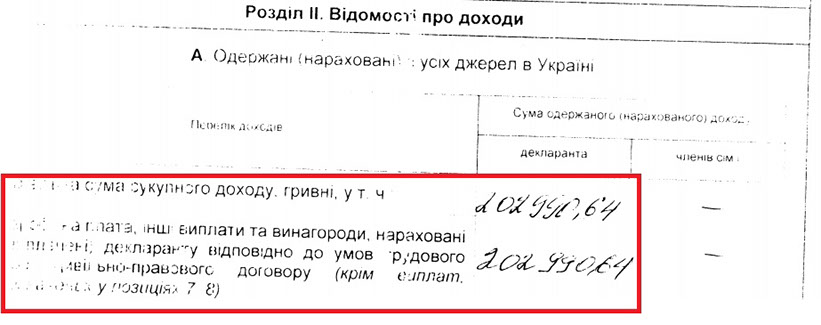 Розділ ІІ. Відомості про доходи
А. Одержані (нараховані) з усіх джерел в Україні
Перелік доходів
Сума одержаного (нарахованого) доходу
декларанта
членів сім
сума сукупного доходу, гривні, у т. ч
202990,64
—
плата, інші виплати та винагороди, нараховані
декларанту відповідно до умов трудового
договору (крім виплат,
у позиціях 7, 8)
202990,64
—